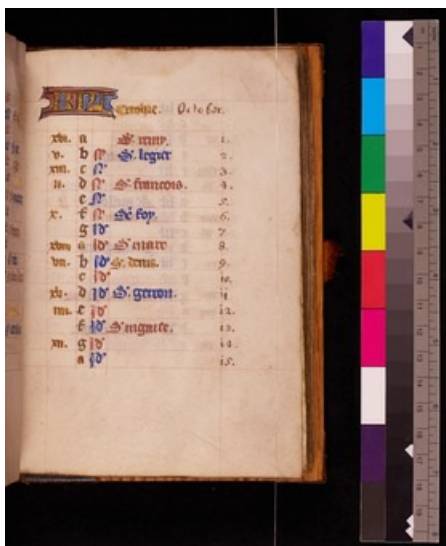 KL October.
xvi. a S. remy. 1.
v. b N' S. legier 2.
xiii. c N' 3.
ii. d N' S. francois. 4.
e N' 5.
x. f N' Ste foy. 6.
g Id' 7.
xviii a Id' S. marc 8.
vii. b Id' S. denis. 9.
c Id' 10.
xv. d Id' S. gereon. 11
iiii. e Id' 12.
f Id' 13.
xii. g Id' 14.
a Id' 15.